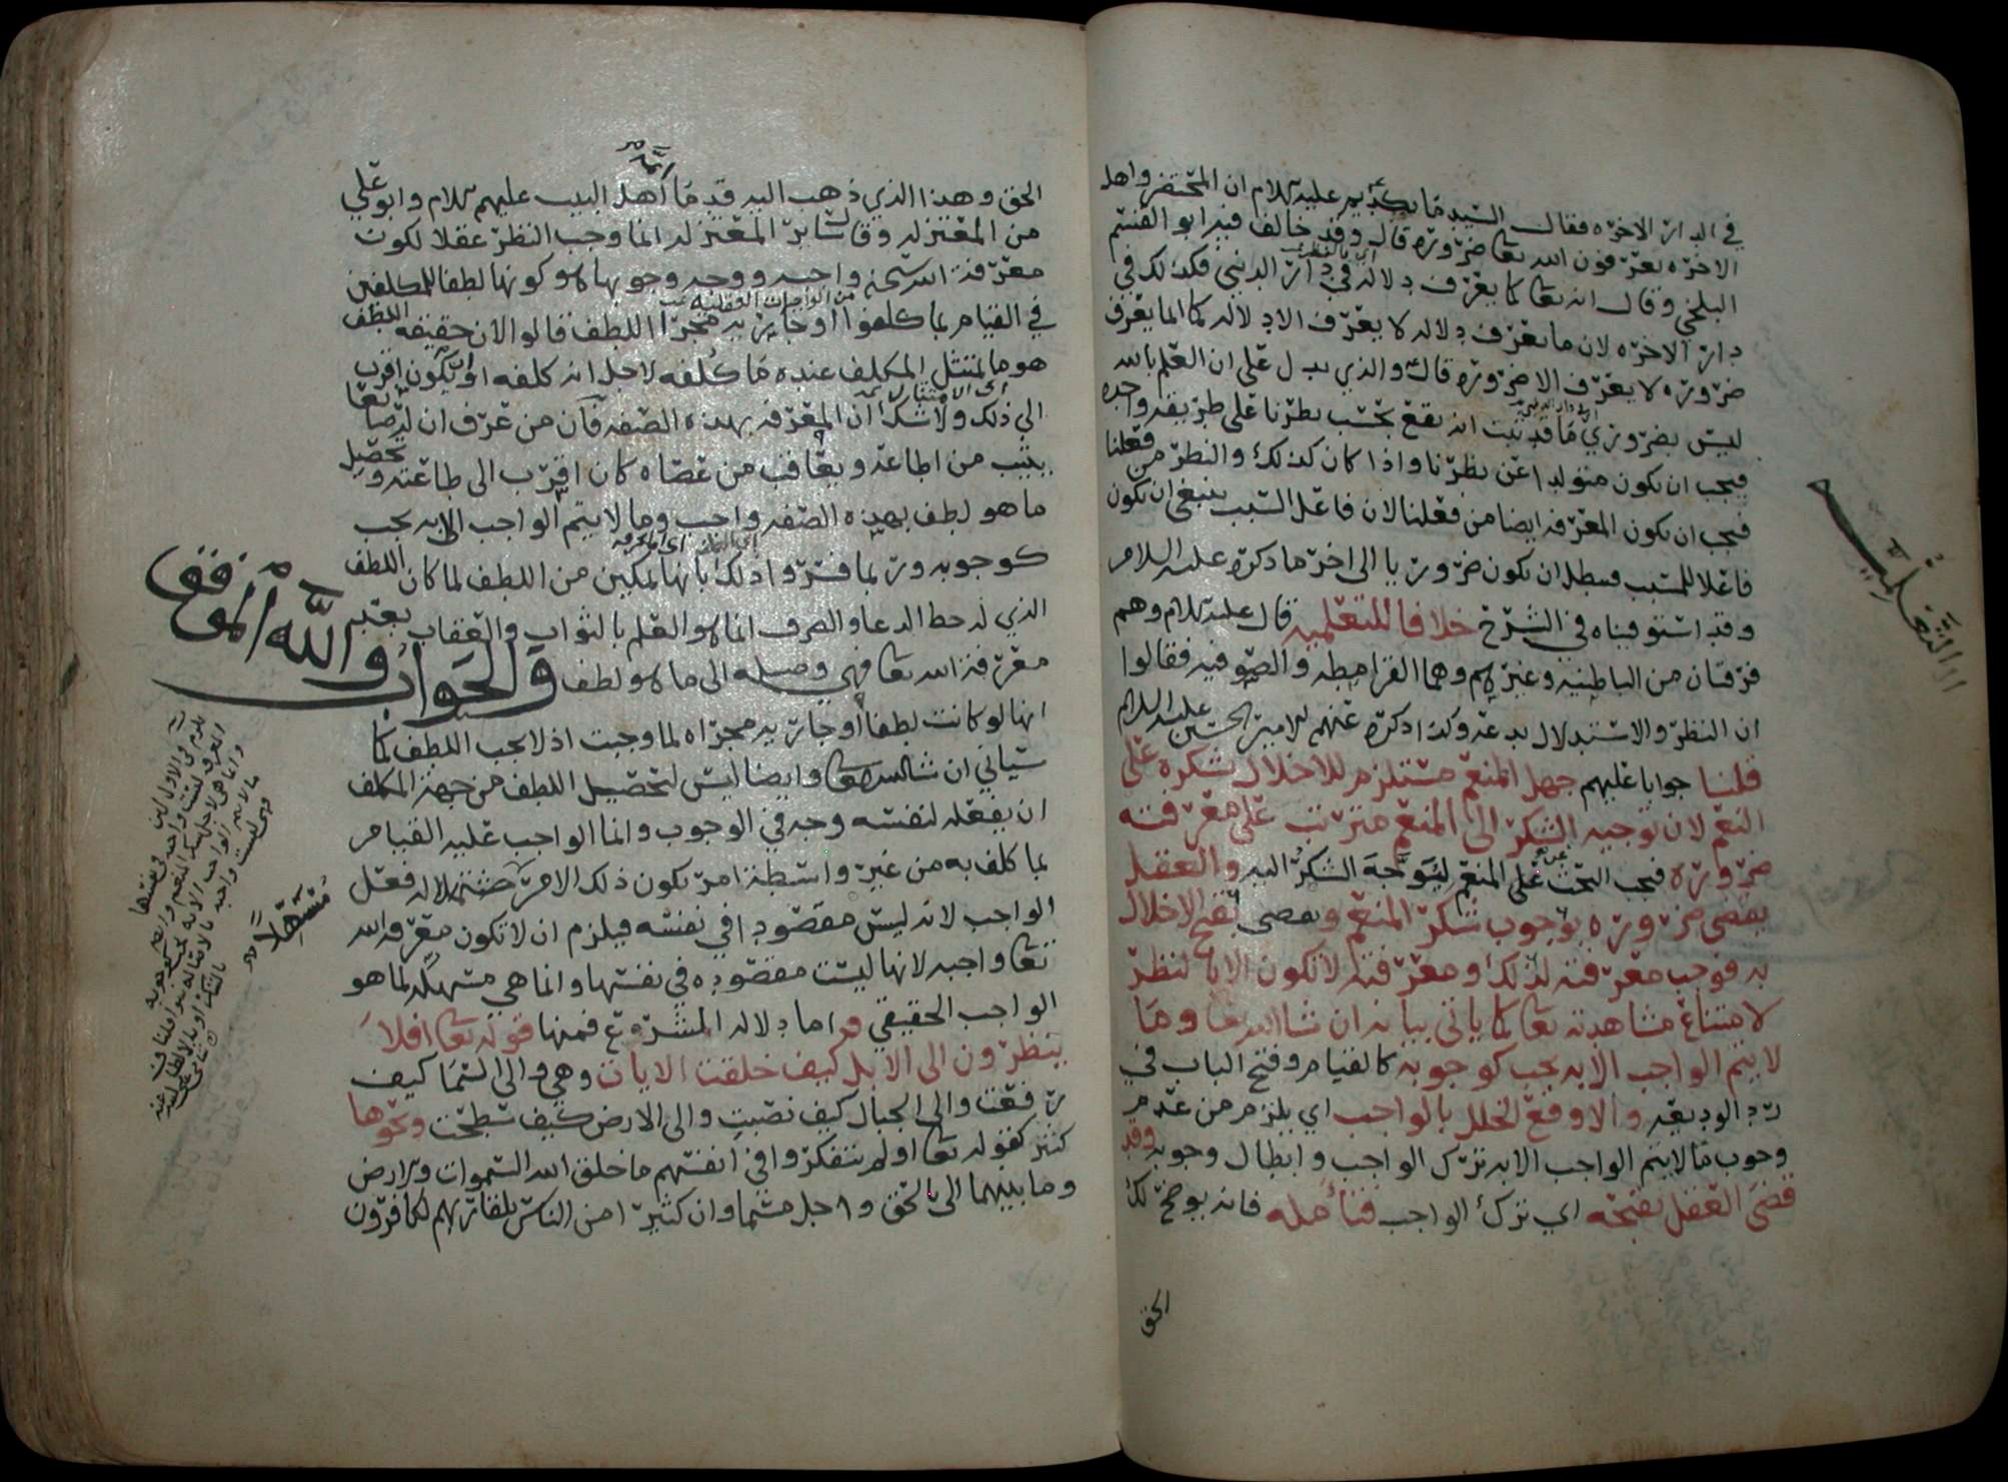 في الدار الاخره فقال السيد مانكديم عليه السلام ان المحتضر واهل
الاخره يعرفون الله تعا ضرورة قال وقد خالف فيه ابو القسم
البلخي وقال انه تعا كما يعرف دلالة في دار الدنيى فكذلك في
دار الاخره لان ما يعرف دلاله لا يعرف الا دلاله كما ان ما يعرف
ضروره لا يعرف الا ضروره قال والذي يدل على ان العلم بالله
ليس بضروري ما قد ثبت انه يقع بحسب نظرنا على طريقه واحده
فيجب ان يكون متولدا عن نظرنا واذا كان كذلك والنظر من فعلنا
فيجب ان تكون المعرفه ايضا من فعلنا لان فاعل السبب ينبغي ان يكون
فاعلا للمسبب فبطل ان يكون ضروريا الى اخر ما ذكره عليه السلام
وقد استوفيناه في الشرح خلافا للتعلميه قال عليه السلام وهم
فرقتان من الباطنيه وغيرهم وهما القرامطه والصوفيه فقالوا
ان النظر والاستدلال بدعه وكذا ذكره عنهم الامير الحسين عليه السلام
قلنا جوابا عليهم جهل المنعم مستلزم للاخلال بشكره على
النعم لان توجيه الشكر الى المنعم مترتب على معرفته
ضروره فيجب البحث على المنعم ليتوجه الشكر اليه والعقل
يقضى ضروره بوجوب شكر المنعم ويقضى بقبح الاخلال
به فوجب معرفته لذلك ومعرفته لا تكون الا بالنظر
لامتناع مشاهدته تعا كما ياتي بيانه ان شا الله تعا وما
لا يتم الواجب الا به يجب كوجوبه كالقيام وفتح الباب في
رد الوديعه والا وقع الخلل بالواجب اي يلزم من عدم
وجوب ما لا يتم الواجب الا به ترك الواجب وابطال وجوبه وقد
قضى العقل بقبحه اي ترك الواجب فتأمله فانه يوضح لك
الحق
التعلميه
الحق وهذا الذي ذهب اليه قدما ائمة اهل البيت عليهم السلام وابو علي
من المعتزله وقال سائر المعتزله انما وجب النظر عقلا لكون
معرفة الله سبحنه واجبه ووجه وجوبها هو كونها لطفا للمكلفين
من الواجبات العقليه
في القيام بما كلفوا او جاريه مجرا اللطف قالوا لان حقيقه اللطف
هو ما يمتثل المكلف عنده ما كلفه لاجل انه كلفه او يكون اقرب
اي الامتثال
الى ذلك ولا شك ان المعرفه بهذه الصفه فان من عرف ان له صانعا
يثيب من اطاعه ويعاقب من عصاه كان اقرب الى طاعته وتحصيل
ما هو لطف بهذه الصفه واجب وما لا يتم الواجب الا به يجب
كوجوبه وربما فسروا ذلك بانها تمكين من اللطف لما كان اللطف
الذي له حظ الدعا والصرف انما هو العلم بالثواب والعقاب بعد
معرفة الله تعا فهي وصله الى ما هو لطف والجواب والله الموفق
انها لو كانت لطفا او جاريه مجراه لما وجبت اذ لا يجب اللطف كما
سياتي ان شا الله تعا وايضا ليس لتحصيل اللطف من جهة المكلف
ان يفعله لنفسه وجه في الوجوب وانما الواجب عليه القيام
بما كلف به من غير واسطة امر يكون ذلك الامر مسهلا له فعل
الواجب لانه ليس مقصودا في نفسه فيلزم ان لا تكون معرفه الله
تعا واجبه لانها ليست مقصوده في نفسها وانما هي مسهله لما هو
الواجب الحقيقي واما دلاله الشرع فمنها قوله تعا افلا
ينظرون الى الابل كيف خلقت الايات وهي والى السما كيف
رفعت والى الجبال كيف نصبت والى الارض كيف سطحت ونحوها
كثير كقوله تعا اولم يتفكروا في انفسهم ما خلق الله السموات والارض
وما بينهما الا بالحق واجل مسما وان كثيرا من الناس بلقا ربهم لكافرون
مسهلا